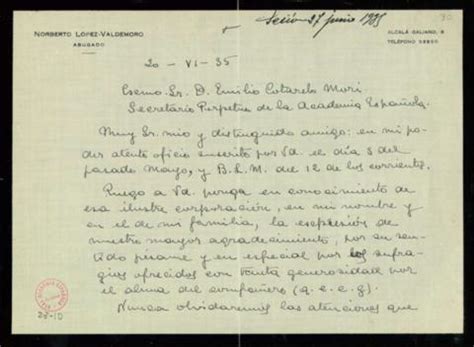 Sesión 27 junio 1935
NORBERTO LÓPEZ-VALDEMORO
ABOGADO
ALCALÁ GALIANO, 8
TELÉFONO
20 - VI - 35
Excmo. Sr. D. Emilio Cotarelo Mori
Secretario Perpetuo de la Academia Española.
Muy Sr. mio y distinguido amigo: en mi po-
der atento oficio suscrito por Vd. el dia 5 del
pasado Mayo, y B.L.M. del 12 de los corrientes.
Ruego a Vd. ponga en conocimiento de
esa ilustre corporación, en mi nombre y
en el de mi familia, la expresión de
nuestro mayor agradecimiento, por su sen-
tido pesame y en especial por los sufra-
gios ofrecidos con tanta generosidad por
el alma del compañero (q. e. g.).
Nunca olvidaremos las atenciones que